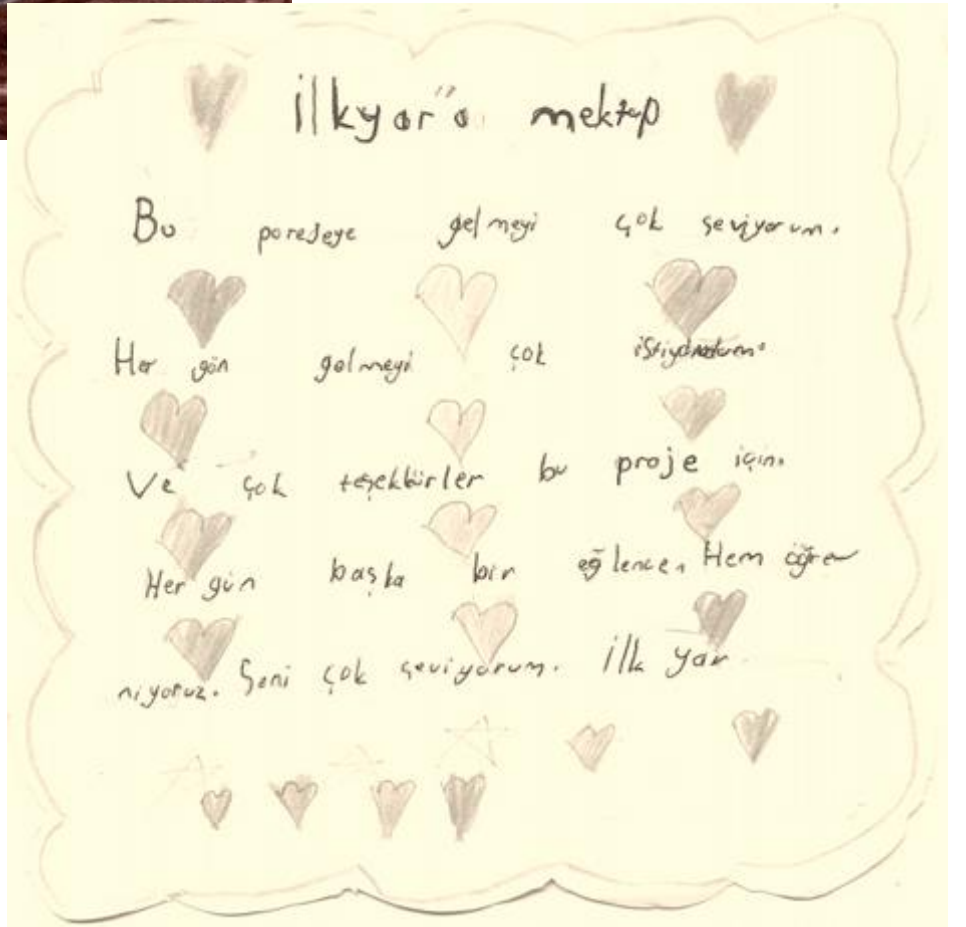 İlkyar"a mektup
Bu porejeye gelmeyi çok seviyorum.
Her gün gelmeyi çok istiyorum.
Ve çok teşekkürler bu proje için.
Her gün başka bir eğlence. Hem öğre
niyoruz. Seni çok seviyorum. İlk yar